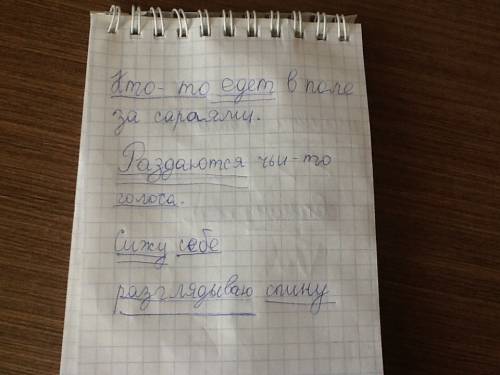 Кто-то едет в поле
за сараями.
Раздаются чьи-то
голоса.
Сижу себе
разглядываю спину